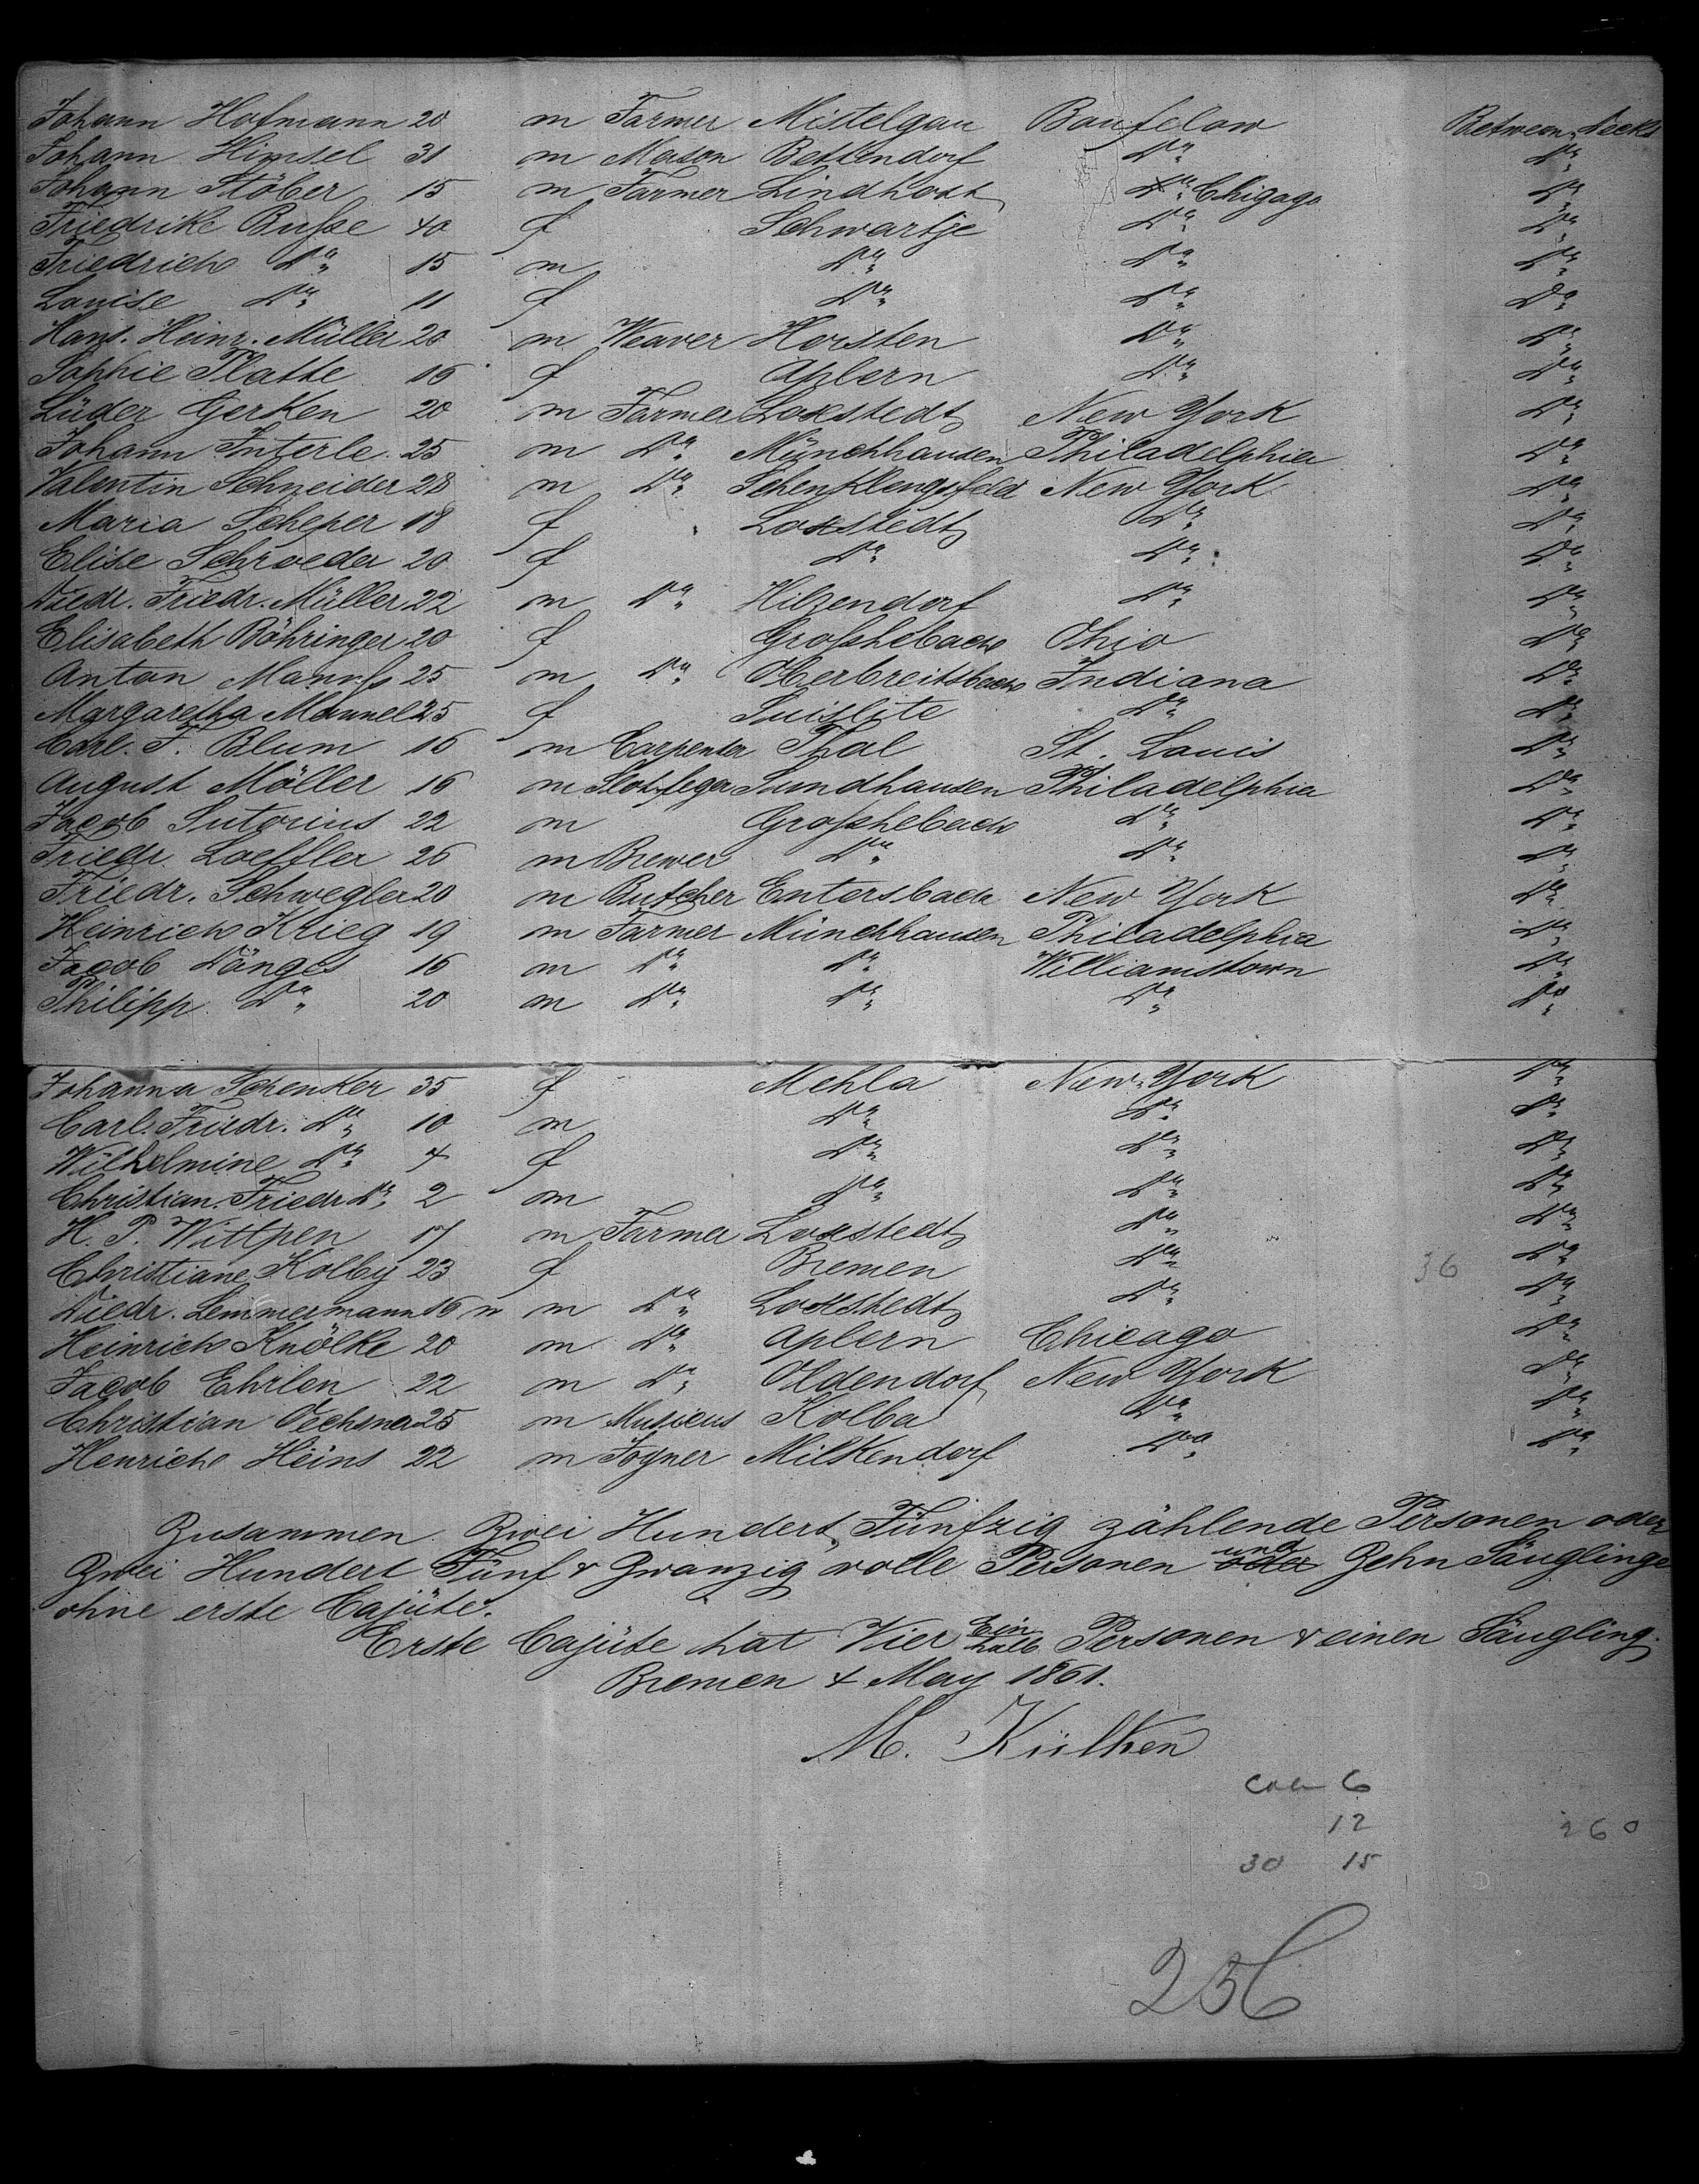 Johann Hofmann 20 m Farmer Mistelgau Boufelow Between Decks
Johann Himsel 31 m Mason Bettendorf Do Do
Johann Stöber 15 m Farmer Lindhorst Do Chigago Do
Friedrike Buße 40 f Schwartje Do Do
Friedrich Do 15 m Do Do Do
Louise Do 11 f Do Do Do
Hans. Heinr. Müller 20 m Weaver Horsten Do Do
Sophie Platte 16 f Aplern Do Do
Lüder Gerken 20 m Farmer Loxstedt New York Do
Johann Interle 25 m Do Münchhausen Philadelphia Do
Valentin Schneider 28 m Do Schenklengsfeld New York Do
Maria Scheper 18 f Loxstedt Do Do
Elise Schroeder 20 f Do Do Do
Diedr. Friedr. Müller 22 m Do Hilzendorf Do Do
Elisabeth Böhringer 20 f Großhebach Ohio Do
Anton 25 m Do Oberbreitsbach Indiana Do
Margaretha Mannel 25 f Do Do
Carl. F. Blum 16 m Carpenter Thal St. Louis Do
August Möller 16 m Sundhausen Philadelphia Do
Jacob Sutorius 22 m Großhebach Do Do
Friedr. Loeffler 26 m Brewer Do Do Do
Friedr. Schwegler 20 m Butcher Entersbach New York Do
Heinrich Krieg 19 m Farmer Münchhausen Philadelphia Do
Jacob Dänges 16 m Do Do Williamstown Do
Philipp Do 20 m Do Do Do Do
Johanna Schenker 35 f Mehla New York Do
Carl. Friedr. Do 10 m Do Do Do
Wilhelmine Do 4 f Do Do Do
Christian. Friedr Do 2 m Do Do Do
H. P. Wittpen 17 m Farmer Loxstedt Do Do
Christiane Kolby 23 f Bremen Do 36 Do
Diedr. Lemmermann 16 m Do Loxstedt Do Do
Heinrich Knölke 20 m Do Aplern Chicago Do
Jacob Ehrlen 22 m Do Oldendorf New York Do
Christian Oechsner 25 m Musicus Kolba Do Do
Henrich Heins 22 m Jogner Milkendorf Do Do
Zusammen Zwei Hundert Fünfzig zählende Personen oder
Zwei Hundert Fünf & Zwanzig volle Personen oder und Zehn Säuglinge
ohne erste Cajüte.
Erste Cajüte hat Vier Ein halb Personen & einen Säugling.
Bremen 4 May 1861.
M. Külken
6
12
260
30 15
256